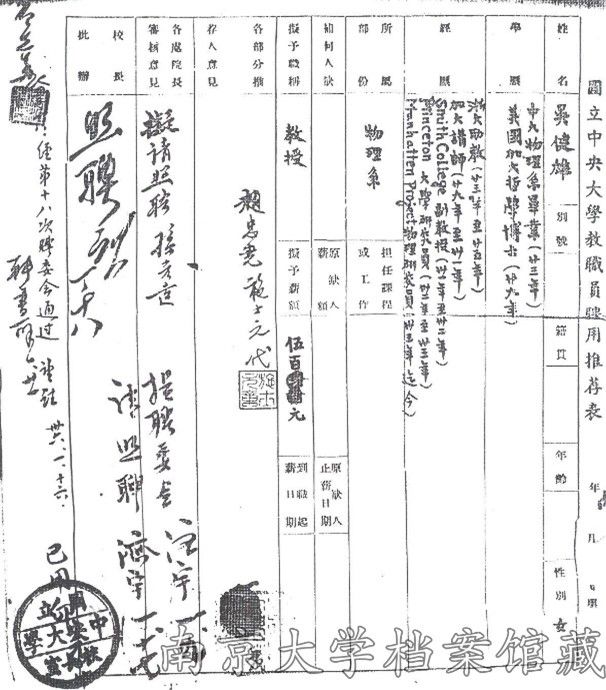 國立中央大學教職員聘用推荐表
年 月 填
姓名 吳健雄 別號 籍貫 年齡 性別 女
學歷
中大物理系畢業(廿三年)
美國加大哲學博士(廿九年)
經歷
浙大助教(廿三年至廿五年)
加大講師(廿九年至卅一年)
Smith College 副教授(卅一年至卅二年)
Princeton 大學研究員(卅二年至卅三年)
Manhatten Project 物理研究員(卅三年迄今)
所屬部份 物理系 担任課程或工作
如何人缺 原缺人薪額 原缺人止務日期
擬予職稱 教授 擬予薪額 伍百 元 到職起薪日期
各部分推荐人意見
趙忠堯 施士元代
各處院長審核意見
擬請照聘 孫光遠
提聘委會
校長批辦
照聘
請照聘
經第十八次聘委会通過
卅六、一、十六、
已用
國立中央大學校長室
南京大学档案馆藏